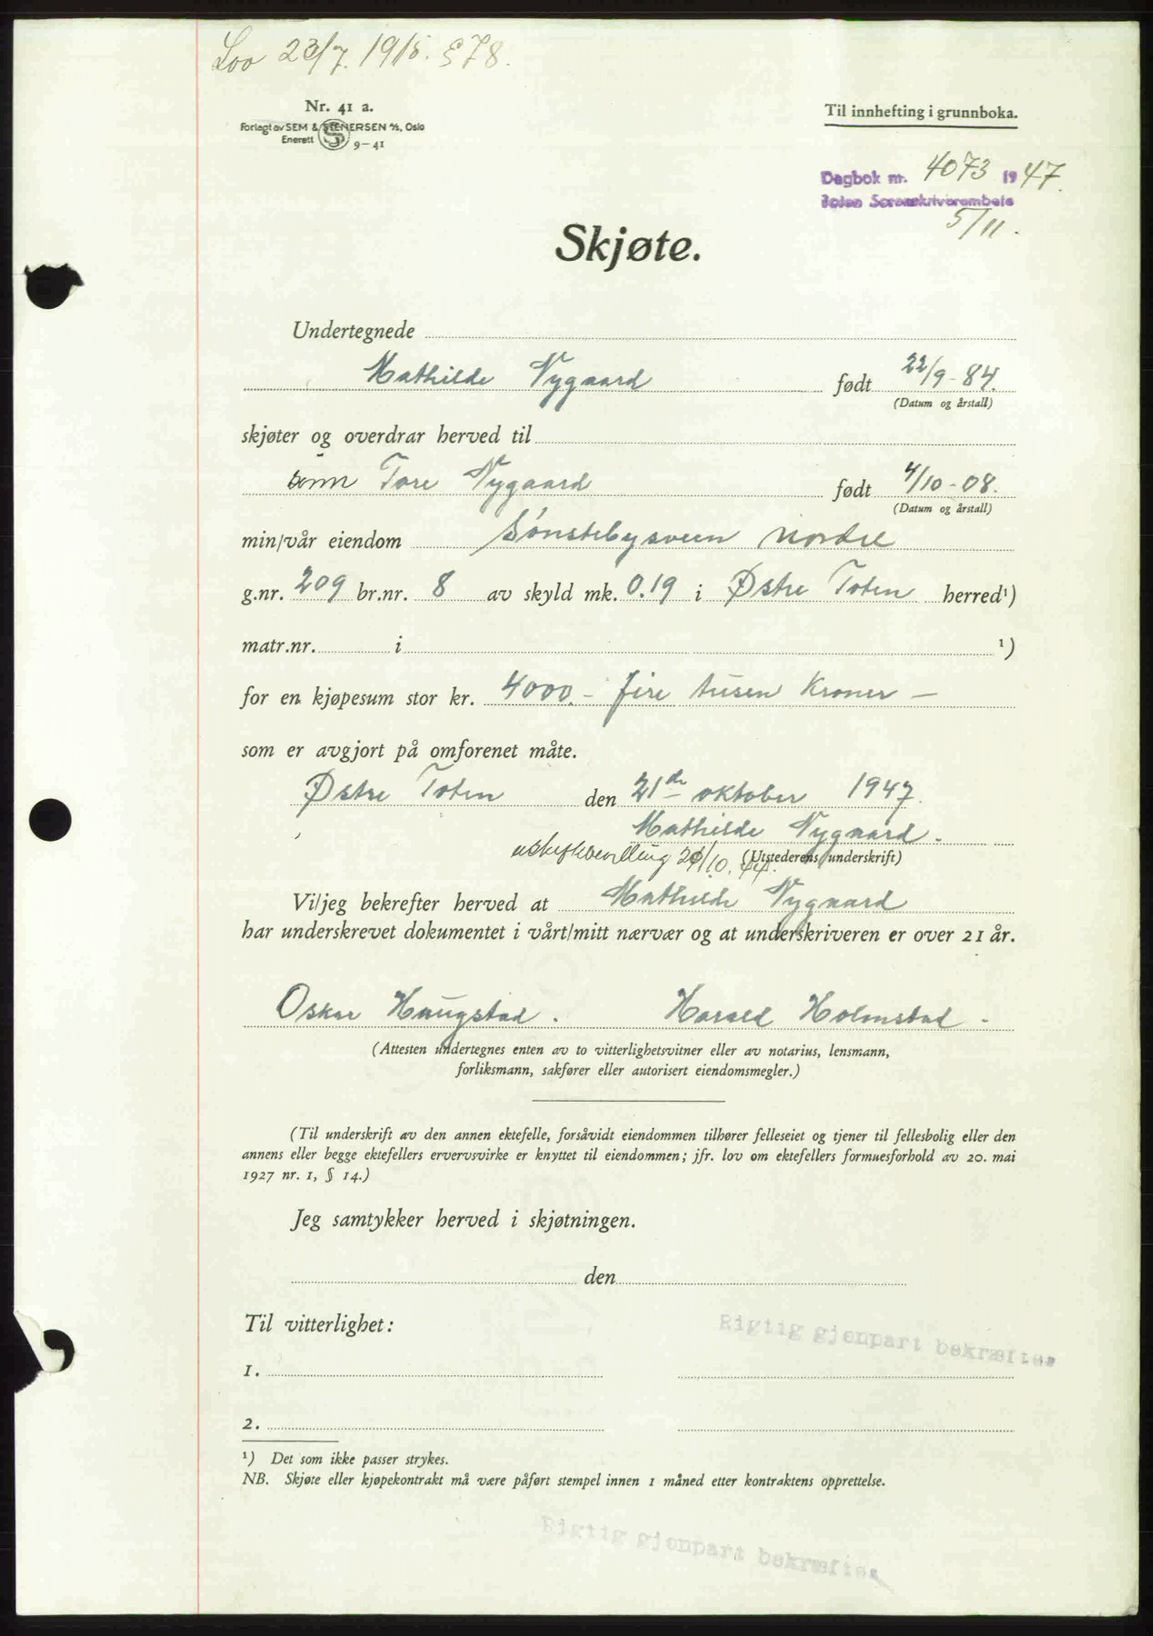 Lov 23/7. 1915. § 78.
Nr. 41 a.
Forlagt av SEM & STENERSEN A/S, Oslo
Enerett 9-41
Til innhefting i grunnboka.
Dagbok nr. 4073 1947.
Toten Sorenskriverembete
5/11.
Skjøte.
Undertegnede
Mathilde Nygaard født 22/9-84.
(Datum og årstall)
skjøter og overdrar herved til
sønn Tore Nygaard født 4/10-08.
(Datum og årstall)
min/vår eiendom Sønstebysveen nordre
g.nr. 209 br.nr. 8 av skyld mk. 0.19 i Østre Toten herred¹)
matr.nr. i ¹)
for en kjøpesum stor kr. 4000.- fire tusen Kroner -
som er avgjort på omforenet måte.
Østre Toten den 21de oktober 1947.
Mathilde Nygaard.
uskiftebevilling 20/10. 44. (Utstederens underskrift)
Vi/jeg bekrefter herved at Mathilde Nygaard
har underskrevet dokumentet i vårt/mitt nærvær og at underskriveren er over 21 år.
Oskar Haugstad. Harald Holmstad -
(Attesten undertegnes enten av to vitterlighetsvitner eller av notarius, lensmann,
forliksmann, sakfører eller autorisert eiendomsmegler.)
(Til underskrift av den annen ektefelle, forsåvidt eiendommen tilhører felleseiet og tjener til fellesbolig eller den
annens eller begge ektefellers ervervsvirke er knyttet til eiendommen; jfr. lov om ektefellers formuesforhold av 20. mai
1927 nr. 1, § 14.)
Jeg samtykker herved i skjøtningen.
den
Til vitterlighet:
Rigtig gjenpart bekræftes
1.
2.
¹) Det som ikke passer strykes.
NB. Skjøte eller kjøpekontrakt må være påført stempel innen 1 måned etter kontraktens opprettelse.
Rigtig gjenpart bekræftes